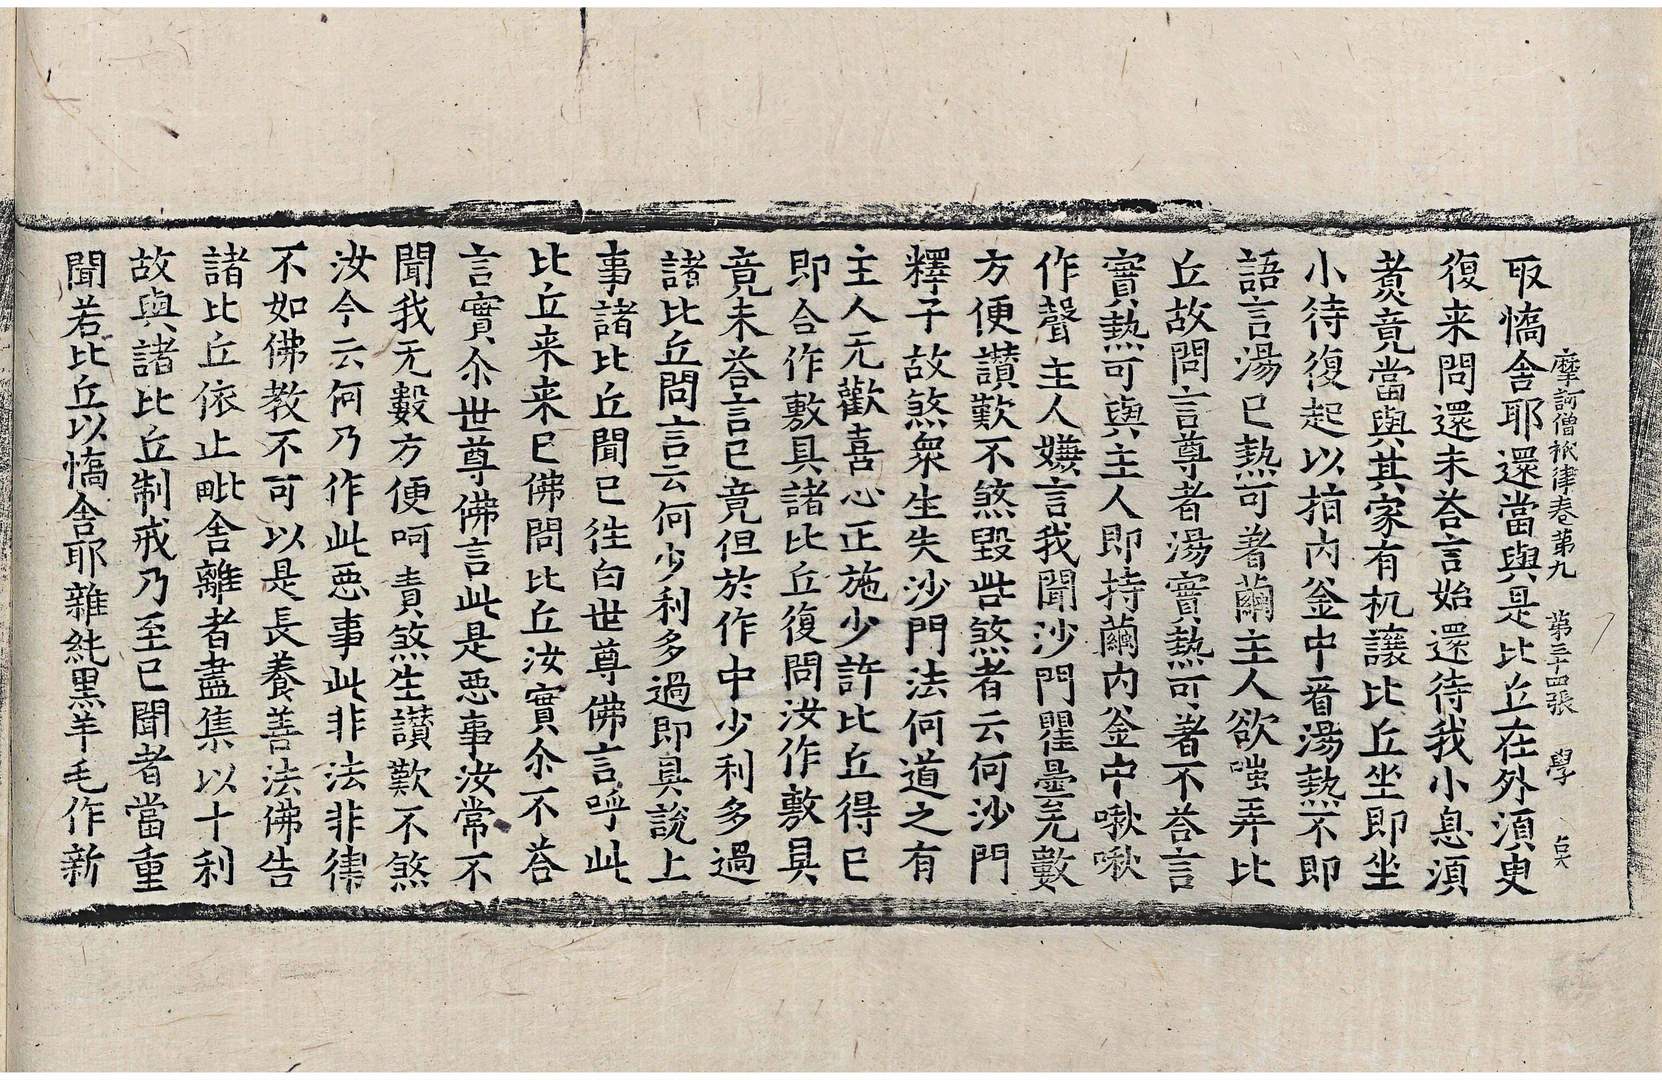 摩訶僧祇律卷第九 第三十四張 學
取憍舍耶還當與是比丘在外湏臾
復来問還未荅言始還待我小息湏
煑竟當與其家有机讓比丘坐即坐
小待復起以指内釜中看湯熱不即
語言湯已熱可著繭主人欲嗤弄比
丘故問言尊者湯實熱可著不荅言
實熱可與主人即持繭内釜中啾啾
作聲主人嫌言我聞沙門瞿曇无數
方便讃歎不煞毀呰煞者云何沙門
釋子故煞衆生失沙門法何道之有
主人无歡喜心正施少許比丘得已
即合作敷具諸比丘復問汝作敷具
竟未荅言已竟但於作中少利多過
諸比丘問言云何少利多過即具說上
事諸比丘聞已徃白世尊佛言呼此
比丘来来已佛問比丘汝實尒不荅
言實尒世尊佛言此是惡事汝常不
聞我无數方便呵責煞生讃歎不煞
汝今云何乃作此惡事此非法非律
不如佛教不可以是長養善法佛告
諸比丘依止毗舍離者盡集以十利
故與諸比丘制戒乃至已聞者當重
聞若比丘以憍舍耶雜純黒羊毛作新